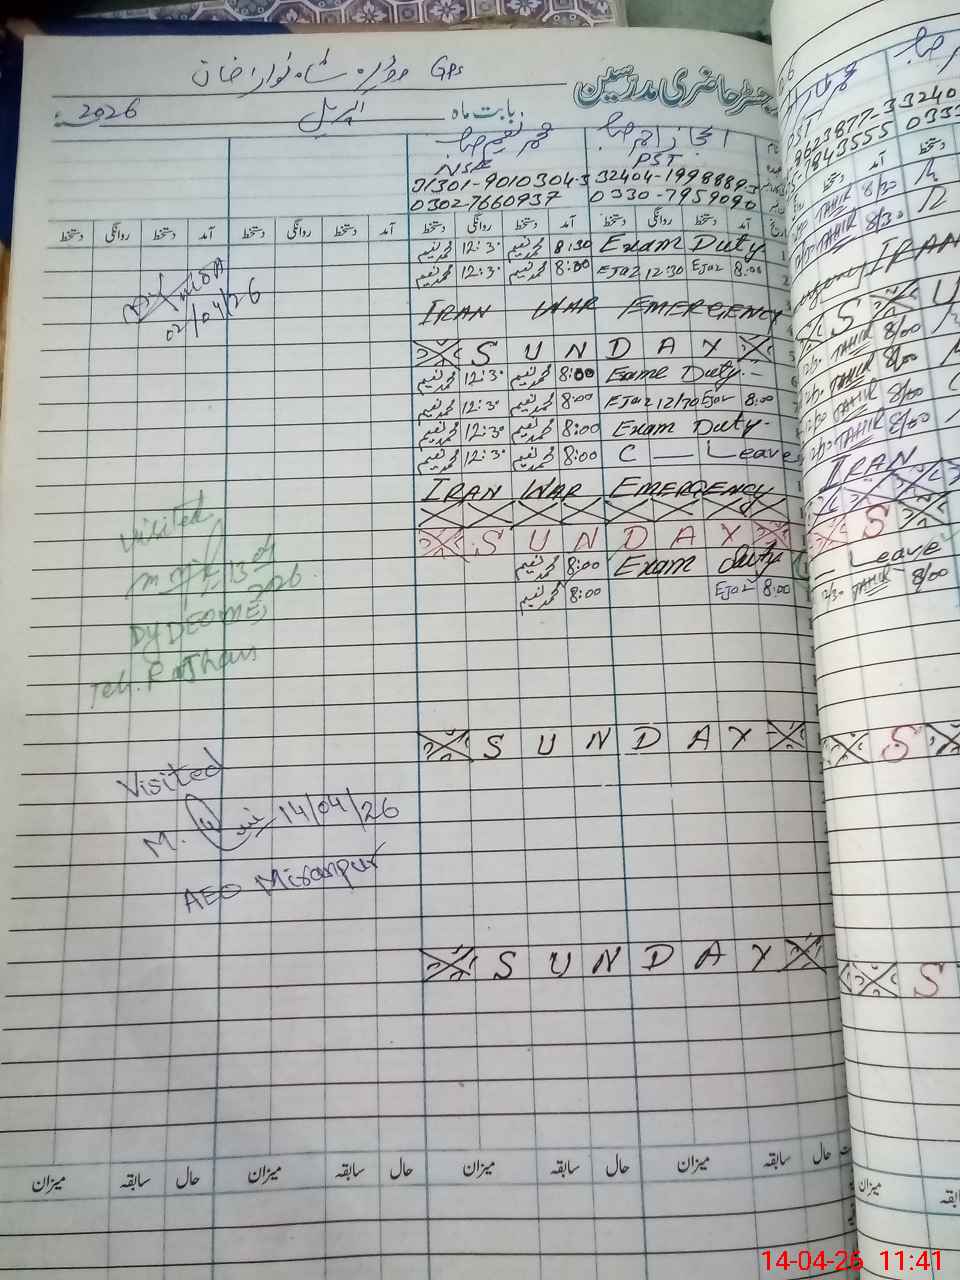 GPS موڑہ شاہ نواز خان
رجسٹر حاضری مدرسین
بابت ماہ اپریل 2026ء
اعجاز احمد صاحب محمد نعیم صاحب
PST
32404-1998889-3
0330-7959090
31301-9010304-5
0302-7660937
آمد دستخط روانگی دستخط آمد دستخط روانگی دستخط آمد دستخط روانگی دستخط آمد دستخط روانگی دستخط
محمد نعیم 12:30 محمد نعیم 8:30 Exam Duty
محمد نعیم 12:30 محمد نعیم 8:00 EJaz 12:30 EJaz 8:00
02/04/26
IRAN WAR EMERGENCY
SUNDAY
محمد نعیم 12:30 محمد نعیم 8:00 Exame Duty
محمد نعیم 12:30 محمد نعیم 8:00 EJaz 12/30 EJaz 8:00
محمد نعیم 12:30 محمد نعیم 8:00 Exam Duty
محمد نعیم 12:30 محمد نعیم 8:00 C — Leave
IRAN WAR EMERGENCY
SUNDAY
محمد نعیم 8:00 Exam Duty
محمد نعیم 8:00 EJaz 8:00
Visited
DY DEO
Teh. Rojhan
SUNDAY
Visited
M. 14/04/26
AEO Miranpur
SUNDAY
حال سابقہ میزان حال سابقہ میزان حال سابقہ میزان حال سابقہ میزان
PST
TAHIR 8/30
TAHIR 8/30
IRAN
S U
TAHIR 8/00
TAHIR 8/00
TAHIR 8/00
TAHIR 8/00
IRAN
S
Leave
TAHIR 8/00
S
S
میزان
14-04-26 11:41